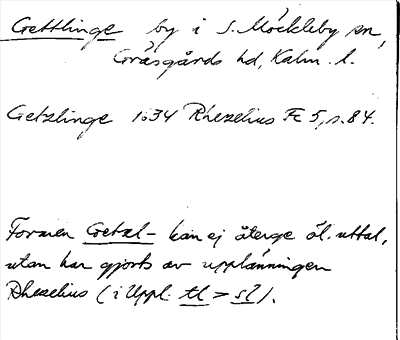 Gettlinge by i S. Möckleby sn,
Gräsgårds hd, Kalm. l.
Getzlinge 1634 Rhezelius Fc 5, s. 84.
Formen Getzl- kan ej återge öl. uttal,
utan har gjorts av upplänningen
Rhezelius (i Uppl. tl > sl).